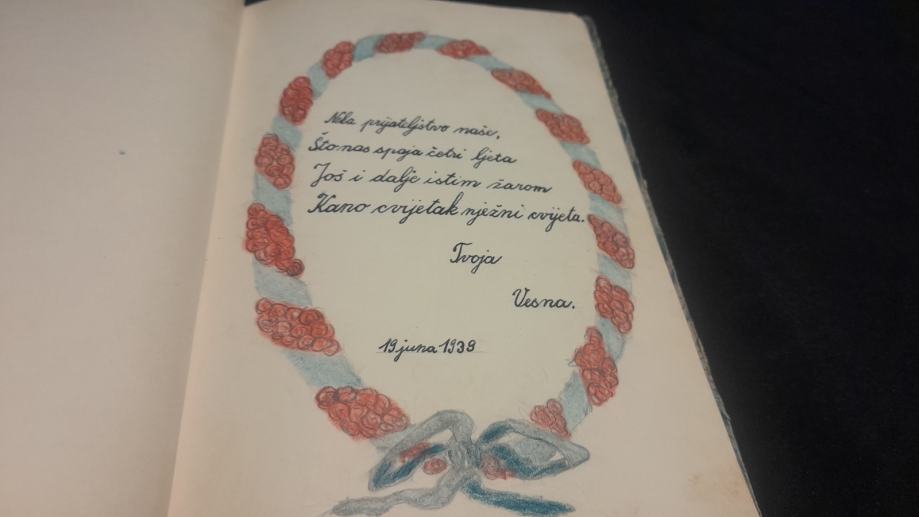 Neka prijateljstvo naše,
Što nas spaja četri ljeta
Još i dalje istim žarom
Kano cvijetak nježni cvijeta.
Tvoja
Vesna.
19 juna 1939